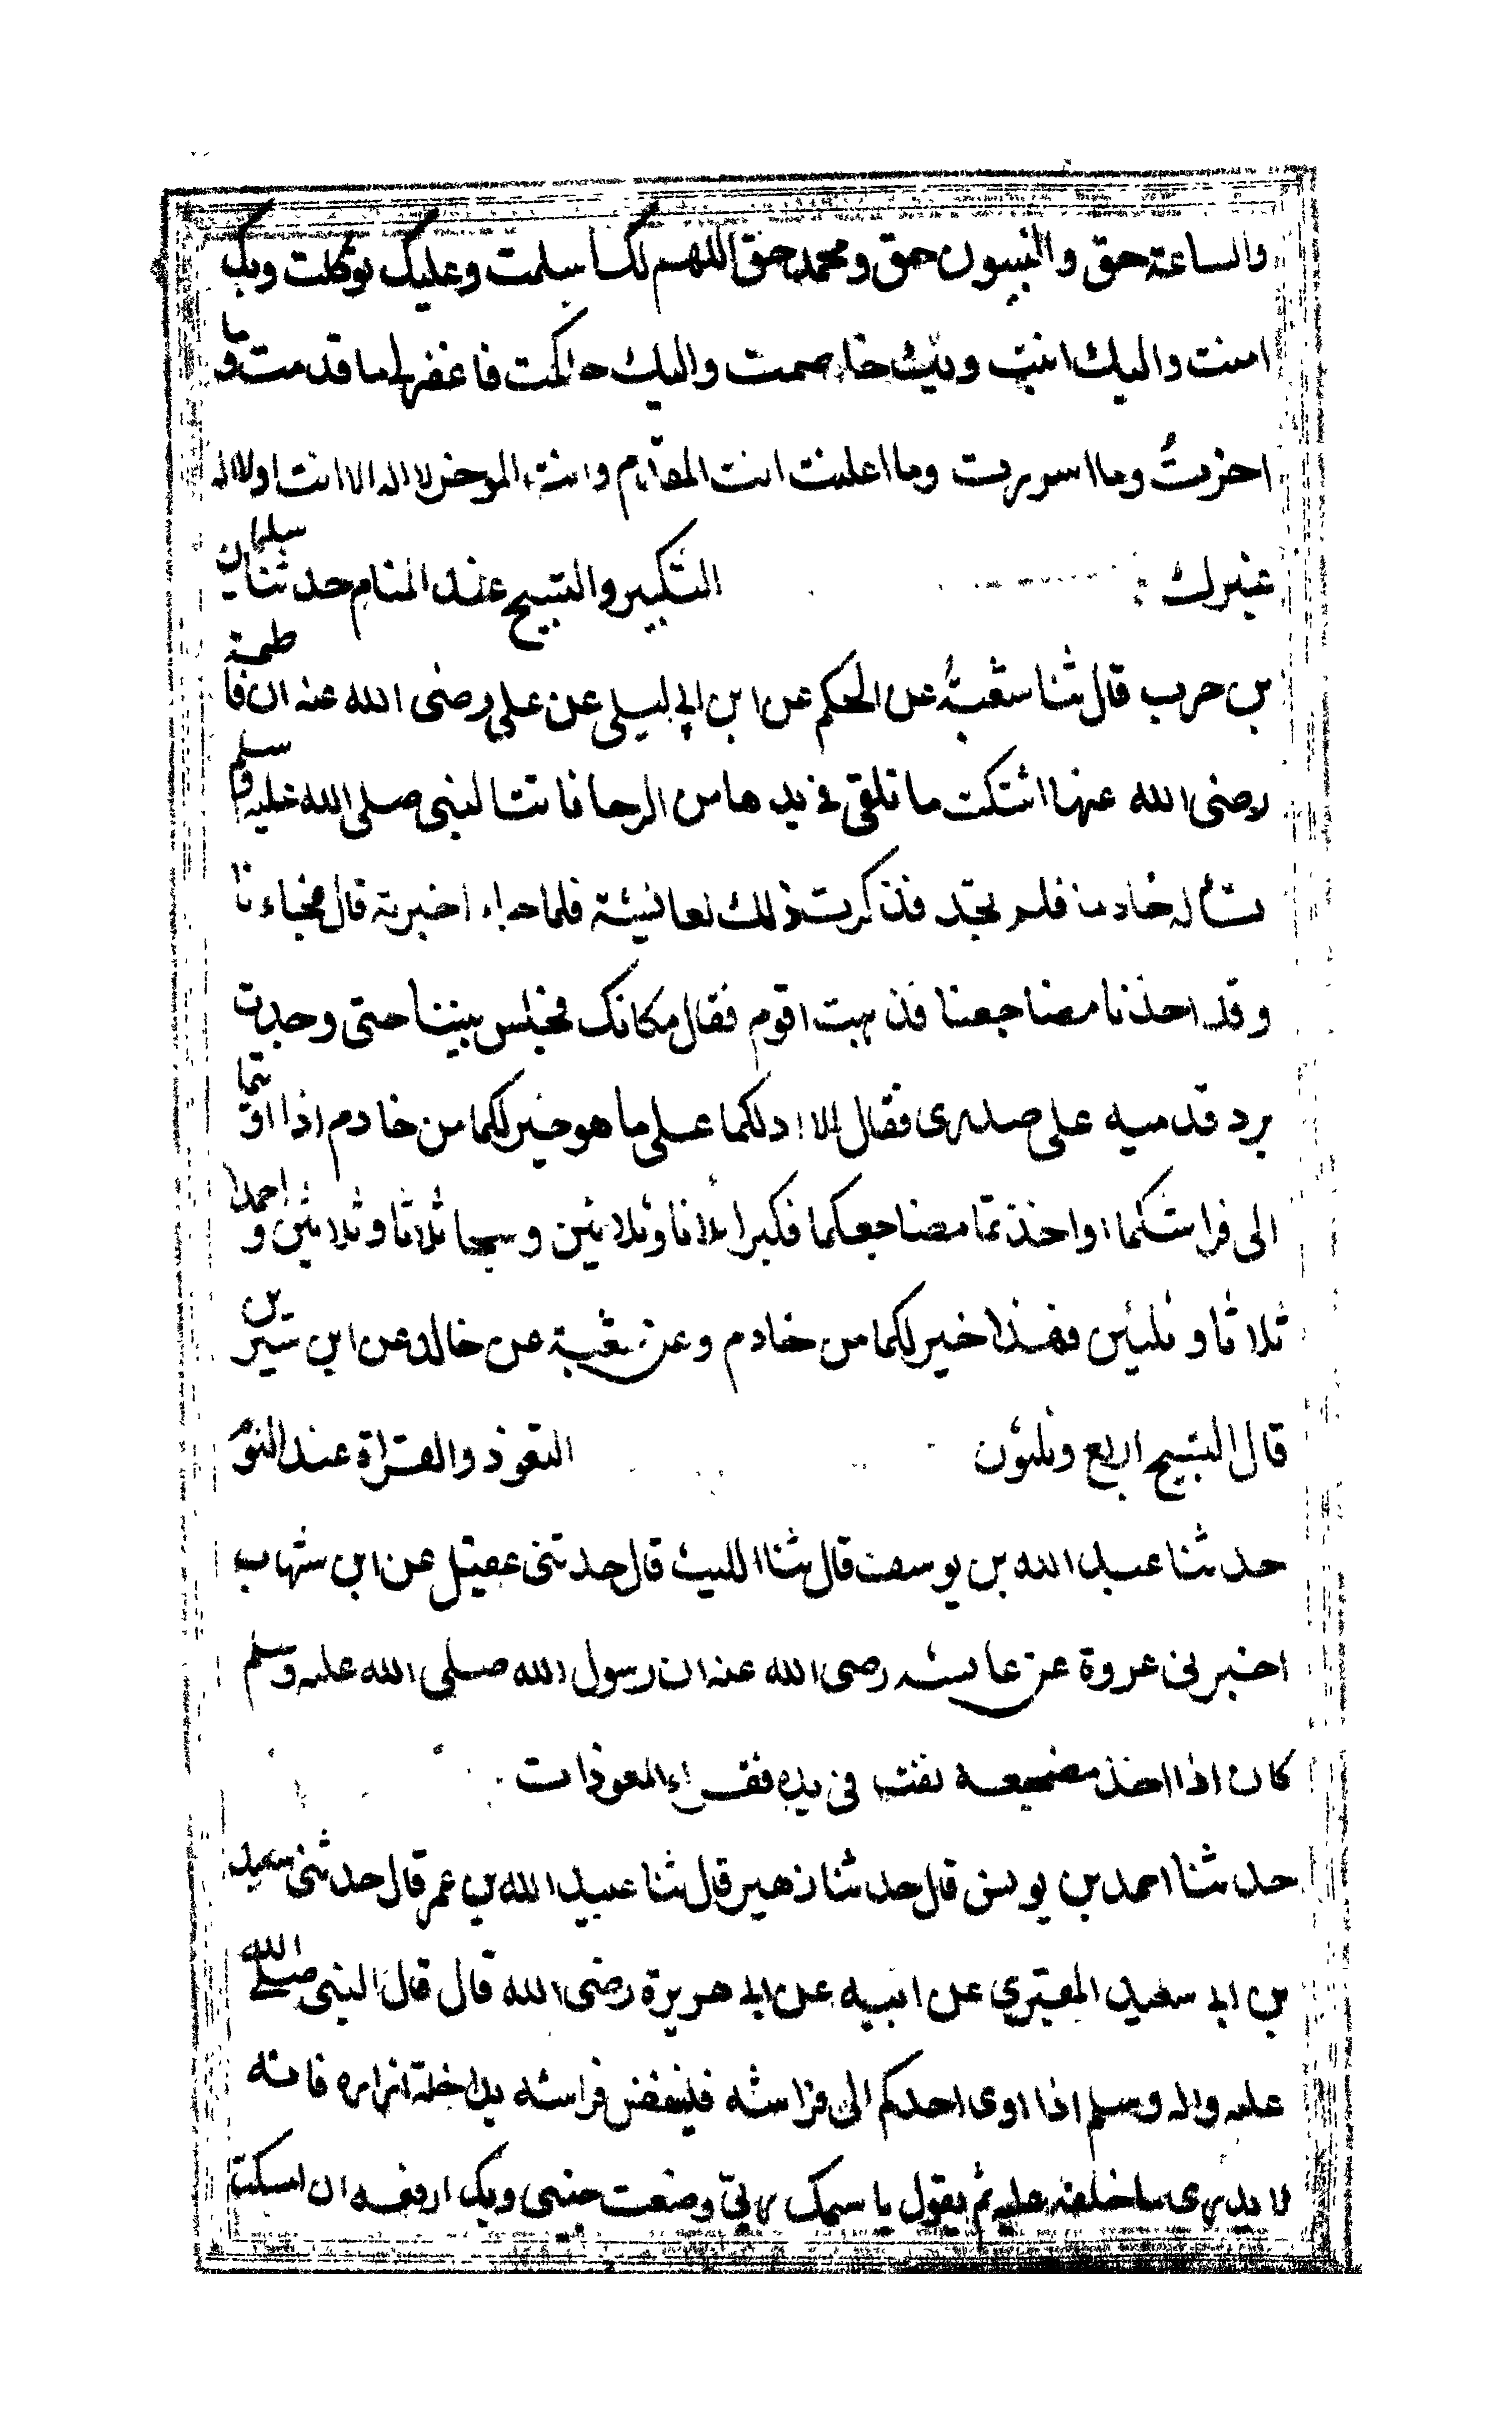 والساعة حق والنبيون حق ومحمد حق اللهم لك اسلمت وعليك توكلت وبك
امنت واليك انبت وبك خاصمت واليك حاكمت فاغفر لي ما قدمت وما
اخرت وما اسررت وما اعلنت انت المقدم وانت الموخر لا اله الا انت او لا اله
غيرك : التكبير والتسبيح عند المنام حدثنا سليمان
بن حرب قال ثنا شعبة عن الحكم عن ابن ابي ليلى عن علي رضى الله عنه ان فاطمة
رضى الله عنها اشتكت ما تلقى في يدها من الرحا فاتت النبي صلى الله عليه وسلم
تسأله خادما فلم تجد فذكرت ذلك لعائشة فلما جاء اخبرته قال فجاءنا
وقد اخذنا مضاجعنا فذهبت اقوم فقال مكانك فجلس بيننا حتى وجدت
برد قدميه على صدرى فقال الا ادلكما على ما هو خير لكما من خادم اذا اويتما
الى فراشكما او اخذتما مضاجعكما فكبرا ثلاثا وثلاثين وسبحا ثلاثا وثلاثين واحمدا
ثلاثا وثلثين فهذا خير لكما من خادم وعن شعبة عن خالد عن ابن سيرين
قال التسبيح اربع وثلثون التعوذ والقراة عند النوم
حدثنا عبد الله بن يوسف قال ثنا الليث قال حدثنى عقيل عن ابن شهاب
اخبرنى عروة عن عايشه رضى الله عنه ان رسول الله صلى الله عليه وسلم
كان اذا اخذ مضجعه نفث فى يده فقراء المعوذات
حدثنا احمد بن يونس قال حدثنا زهير قال ثنا عبيد الله بن عمر قال حدثنى سعيد
بن ابي سعيد المقبري عن ابيه عن ابي هريرة رضى الله قال قال النبى صلى الله
عليه واله وسلم اذا اوى احدكم الى فراشه فلينفض فراشه بداخلة ازاره فانه
لا يدرى ما خلفه عليه ثم يقول باسمك ربي وضعت جنبى وبك ارفعه ان امسكت